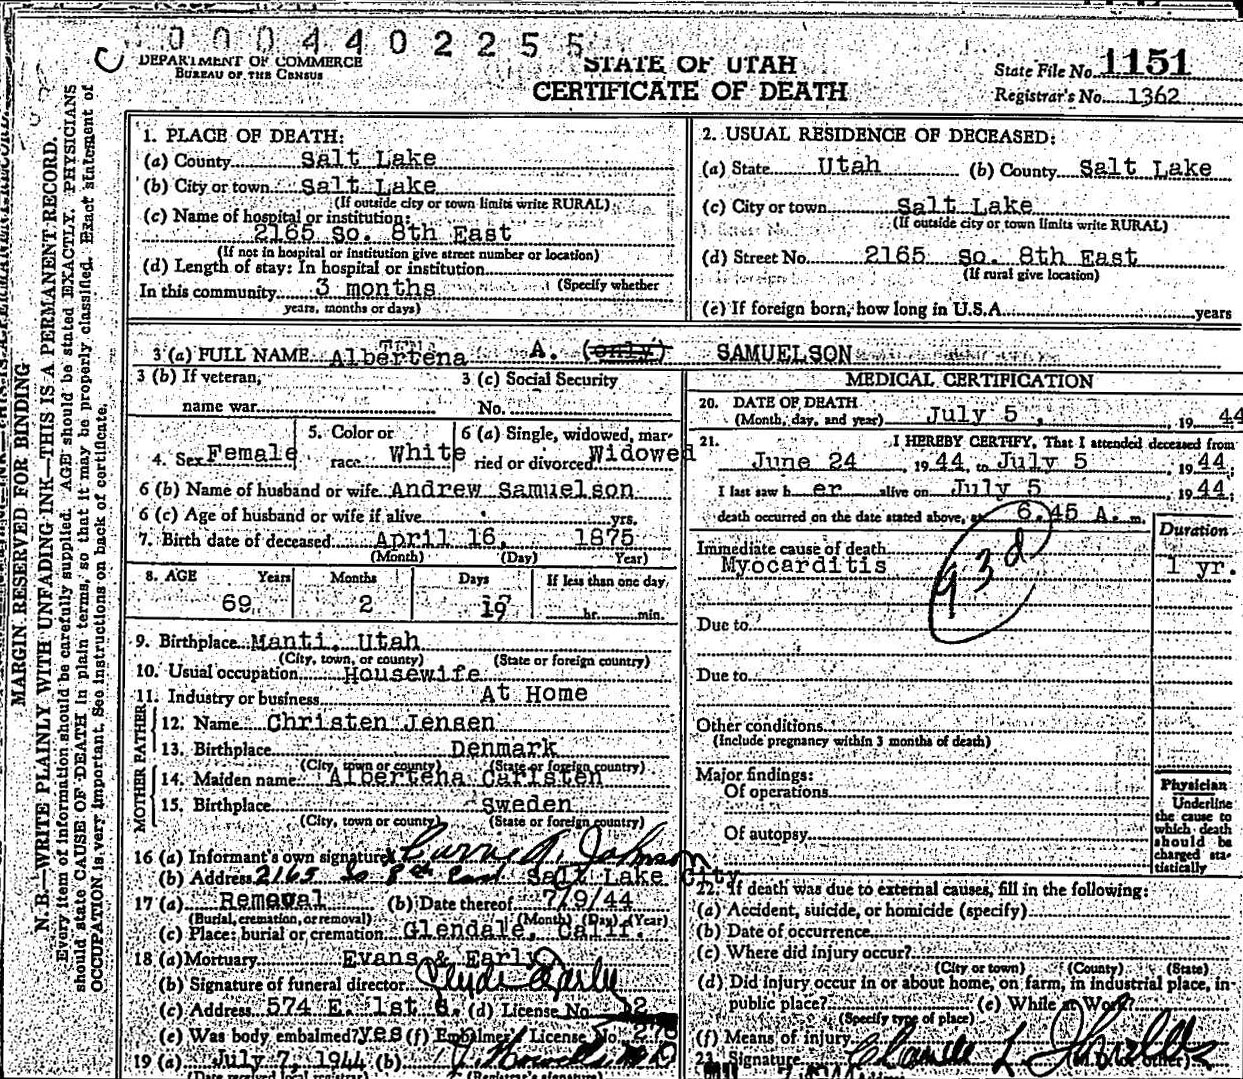 0 0 0 4 4 0 2 2 5 5
DEPARTMENT OF COMMERCE
BUREAU OF THE CENSUS
STATE OF UTAH
CERTIFICATE OF DEATH
State File No. 1151
Registrar's No. 1362
MARGIN RESERVED FOR BINDING
N. B.—WRITE PLAINLY WITH UNFADING INK—THIS IS A PERMANENT RECORD.
Every item of information should be carefully supplied. AGE should be stated EXACTLY. PHYSICIANS
should state CAUSE OF DEATH in plain terms, so that it may be properly classified. Exact statement of
OCCUPATION is very important. See instructions on back of certificate.
1. PLACE OF DEATH:
(a) County Salt Lake
(b) City or town Salt Lake
(If outside city or town limits write RURAL)
(c) Name of hospital or institution:
2165 So. 8th East
(If not in hospital or institution give street number or location)
(d) Length of stay: In hospital or institution
(Specify whether
In this community 3 months
years, months or days)
2. USUAL RESIDENCE OF DECEASED:
(a) State Utah (b) County Salt Lake
(c) City or town Salt Lake
(If outside city or town limits write RURAL)
(d) Street No. 2165 So. 8th East
(If rural give location)
(e) If foreign born, how long in U.S.A. years
3 (a) FULL NAME Albertena A. (only) SAMUELSON
3 (b) If veteran, 3 (c) Social Security
name war No.
4. Sex Female 5. Color or race White 6 (a) Single, widowed, married or divorced Widowed
6 (b) Name of husband or wife Andrew Samuelson
6 (c) Age of husband or wife if alive yrs.
7. Birth date of deceased April 16, 1875
(Month) (Day) Year)
8. AGE Years Months Days If less than one day
69 2 19 hr. min.
9. Birthplace Manti, Utah
(City, town, or county) (State or foreign country)
10. Usual occupation Housewife
11. Industry or business At Home
FATHER
12. Name Christen Jensen
13. Birthplace Denmark
(City, town or county) (State or foreign country)
MOTHER
14. Maiden name Albertena Carlsten
15. Birthplace Sweden
(City, town or county) (State or foreign country)
16 (a) Informant's own signature Johnson
(b) Address 2165 So 8th East Salt Lake City
17 (a) Removal (b) Date thereof 7/9/44
(Burial, cremation, or removal) (Month) (Day) (Year)
(c) Place: burial or cremation Glendale, Calif.
18 (a) Mortuary Evans & Early
(b) Signature of funeral director Clyde Early
(c) Address 574 E. 1st S. (d) License No.
(e) Was body embalmed? yes (f) Embalmer License No.
19 (a) July 7, 1944 (b)
(Date received local registrar) (Registrar's signature)
MEDICAL CERTIFICATION
20. DATE OF DEATH
(Month, day, and year) July 5, 1944
21. I HEREBY CERTIFY, That I attended deceased from
June 24, 1944, to July 5 1944;
I last saw h er alive on July 5 1944;
death occurred on the date stated above, at 6.45 A. m.
Duration
Immediate cause of death
Myocarditis 1 yr.
93d
Due to
Due to
Other conditions
(Include pregnancy within 3 months of death)
Major findings:
Of operations
Of autopsy
Physician
Underline
the cause to
which death
should be
charged sta-
tistically
22. If death was due to external causes, fill in the following:
(a) Accident, suicide, or homicide (specify)
(b) Date of occurrence
(c) Where did injury occur?
(City or town) (County) (State)
(d) Did injury occur in or about home, on farm, in industrial place, in
public place? (e) While at Work?
(Specify type of place)
(f) Means of injury
23. Signature